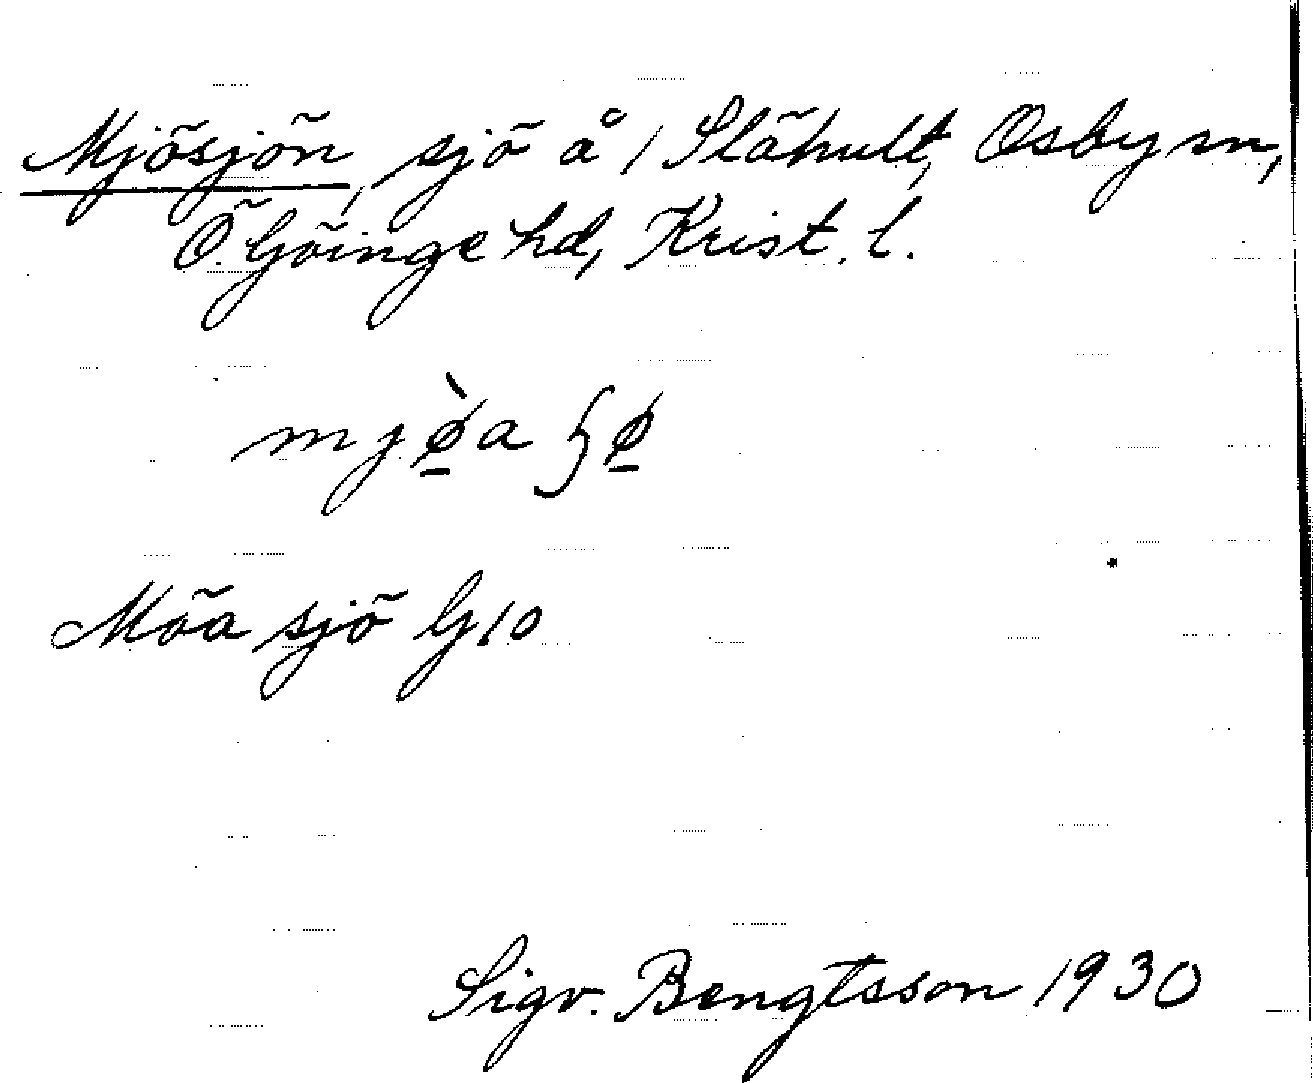 Mjösjön, sjö å 1 Slähult, Osby sn,
Ö. Göinge hd, Krist. l.
mjø̲̀a ʃø̲
Möa sjö G 10
Sigv. Bengtsson 1930